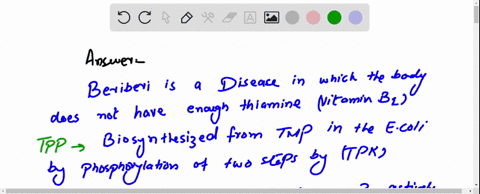 Answer:-
Beriberi is a Disease in which the body
does not have enough thiamine (Vitamin B1)
TPP → Biosynthesized from TMP in the E.coli
by phosphorylation of two steps by (TPK)